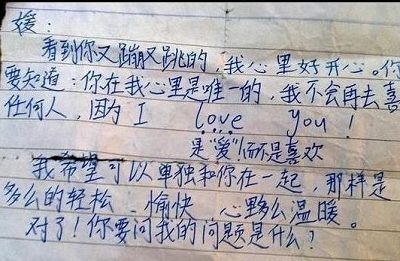 媛：
看到你又蹦又跳的，我心里好开心。你
要知道：你在我心里是唯一的，我不会再去喜
任何人，因为 I love you！
是“爱”而不是喜欢
我希望可以单独和你在一起，那样是
多么的轻松、愉快，心多么温暖。
对了！你要问我的问题是什么？